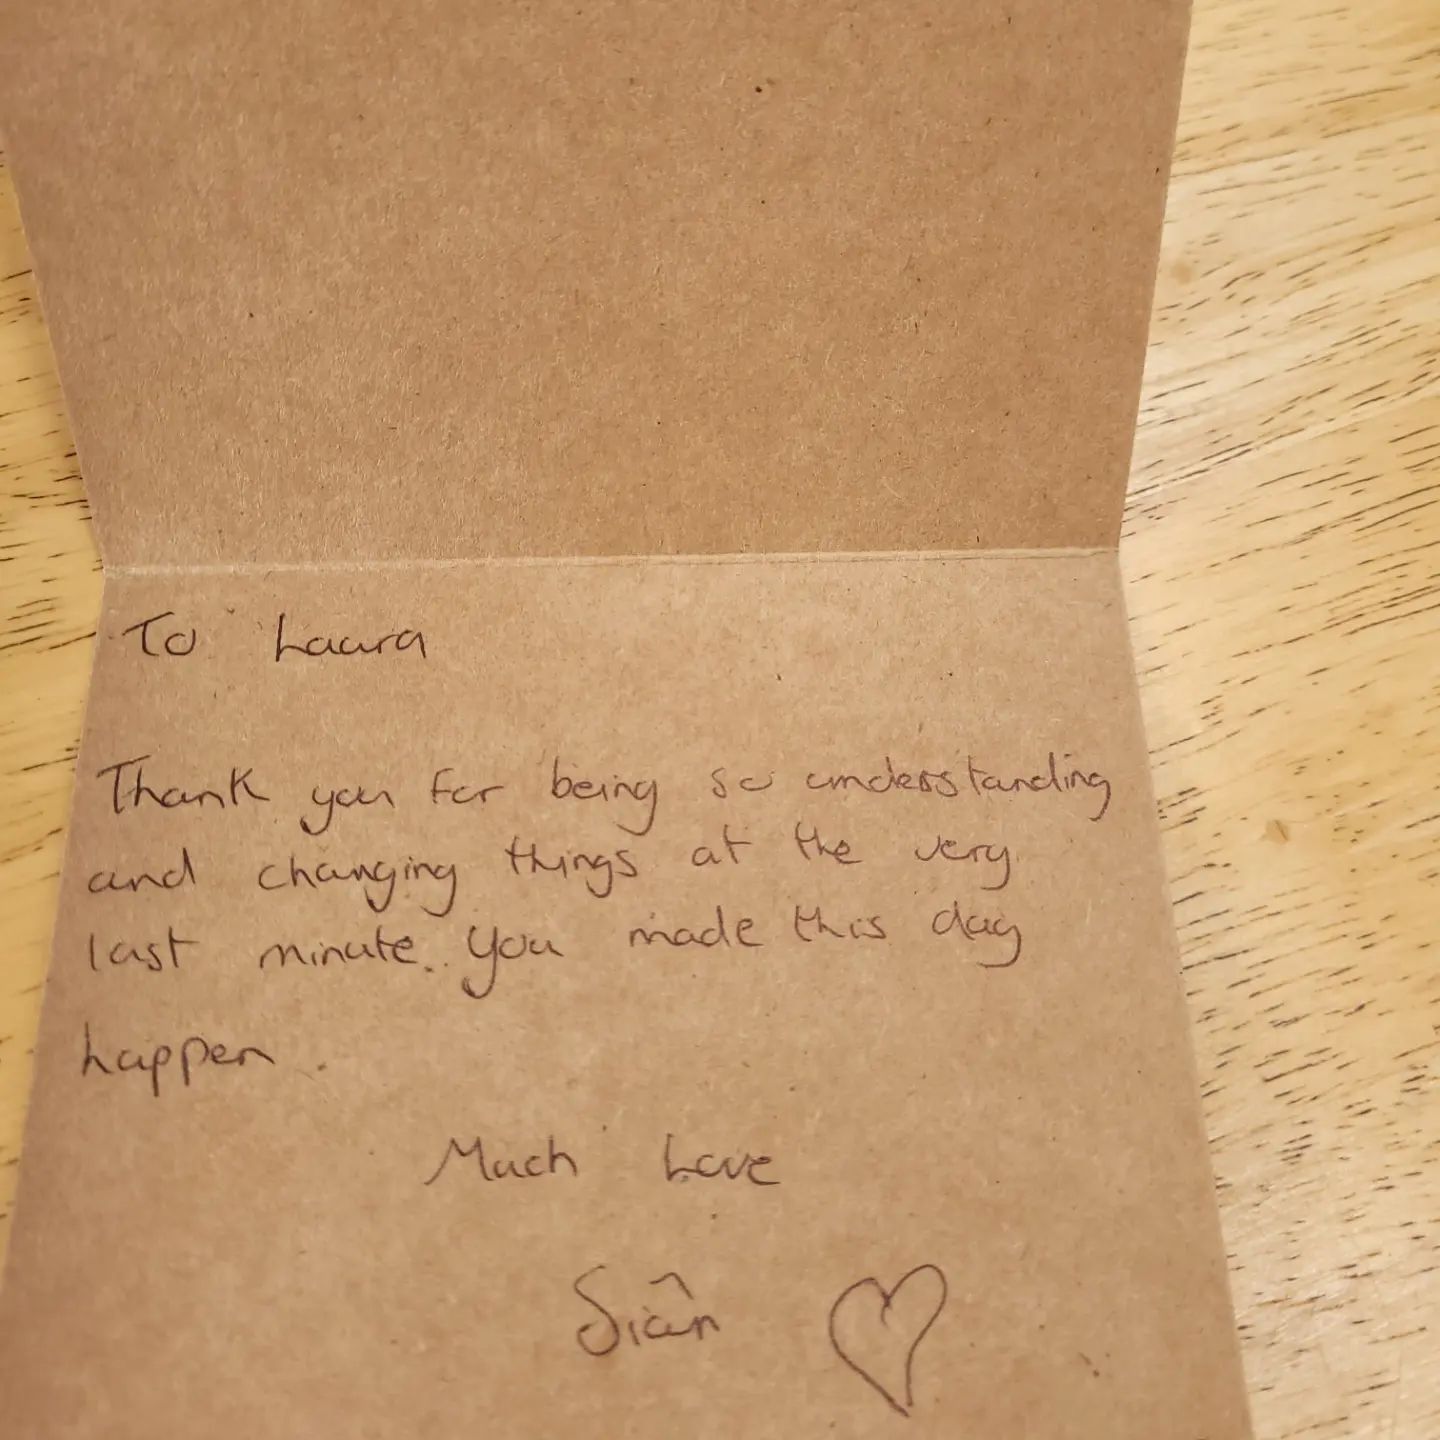 To Laura
Thank you for being so understanding
and changing things at the very
last minute. You made this day
happen.
Much Love
Siân